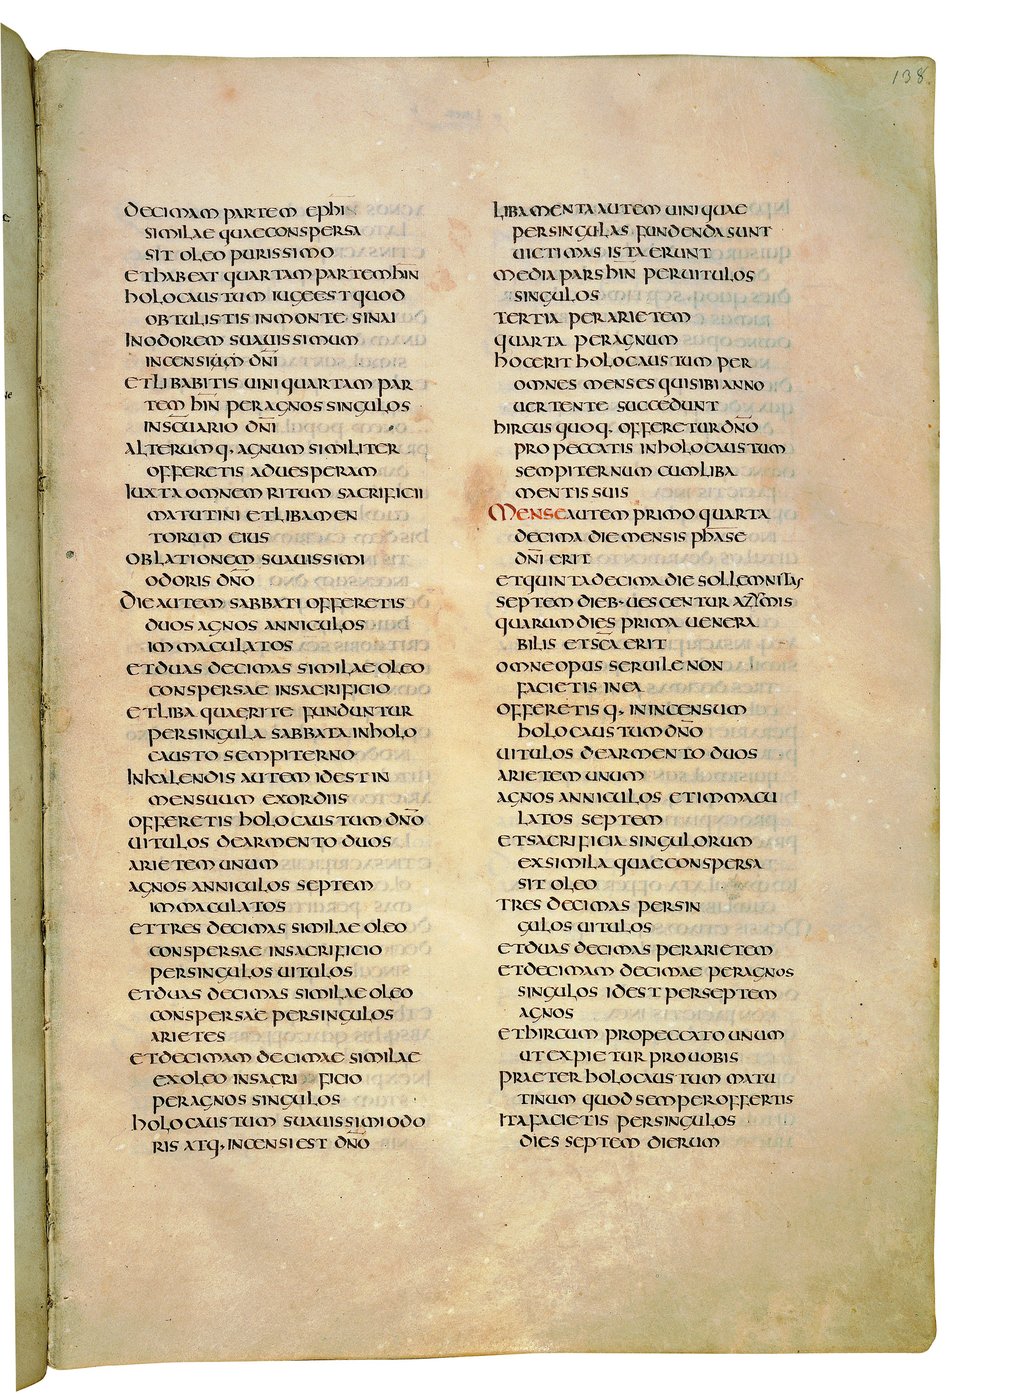 138
decimam partem ephi
similae quae conspersa
sit oleo purissimo
et habeat quartam partem hin
holocaustum iuge est quod
obtulistis in monte sinai
In odorem suauissimum
incensium dn̄i
et libabitis uini quartam par
tem hin per agnos singulos
in sc̄uario dn̄i
alterumq· agnum similiter
offeretis ad uesperam
Iuxta omnem ritum sacrificii
matutini et libamen
torum eius
oblationem suauissimi
odoris dn̄o
Die autem sabbati offeretis
duos agnos anniculos
immaculatos
et duas decimas similae oleo
conspersae in sacrificio
et liba quae rite funduntur
per singula sabbata in holo
causto sempiterno
In kalendis autem id est in
mensuum exordiis
offeretis holocaustum dn̄o
uitulos de armento duos
arietem unum
agnos anniculos septem
immaculatos
et tres decimas similae oleo
conspersae in sacrificio
per singulos uitulos
et duas decimas similae oleo
conspersae per singulos
arietes
et decimam decimae similae
ex oleo in sacrificio
per agnos singulos
holocaustum suauissimi odo
ris atq· incensi est dn̄o
Libamenta autem uini quae
per singulas fundenda sunt
uictimas ista erunt
media pars hin per uitulos
singulos
tertia per arietem
quarta per agnum
hoc erit holocaustum per
omnes menses qui sibi anno
uertente succedunt
hircus quoq· offeretur dn̄o
pro peccatis in holocaustum
sempiternum cum liba
mentis suis
Mense autem primo quarta
decima die mensis phase
dn̄i erit
et quinta decima die sollemnitas
septem dieb· uescentur azymis
quarum dies prima uenera
bilis et sc̄a erit
omne opus seruile non
facietis in ea
offeretisq· in incensum
holocaustum dn̄o
uitulos de armento duos
arietem unum
agnos anniculos et immacu
latos septem
et sacrificia singulorum
ex simila quae conspersa
sit oleo
tres decimas per sin
gulos uitulos
et duas decimas per arietem
et decimam decimae per agnos
singulos id est per septem
agnos
et hircum pro peccato unum
ut expietur pro uobis
praeter holocaustum matu
tinum quod semper offertis
Ita facietis per singulos
dies septem dierum